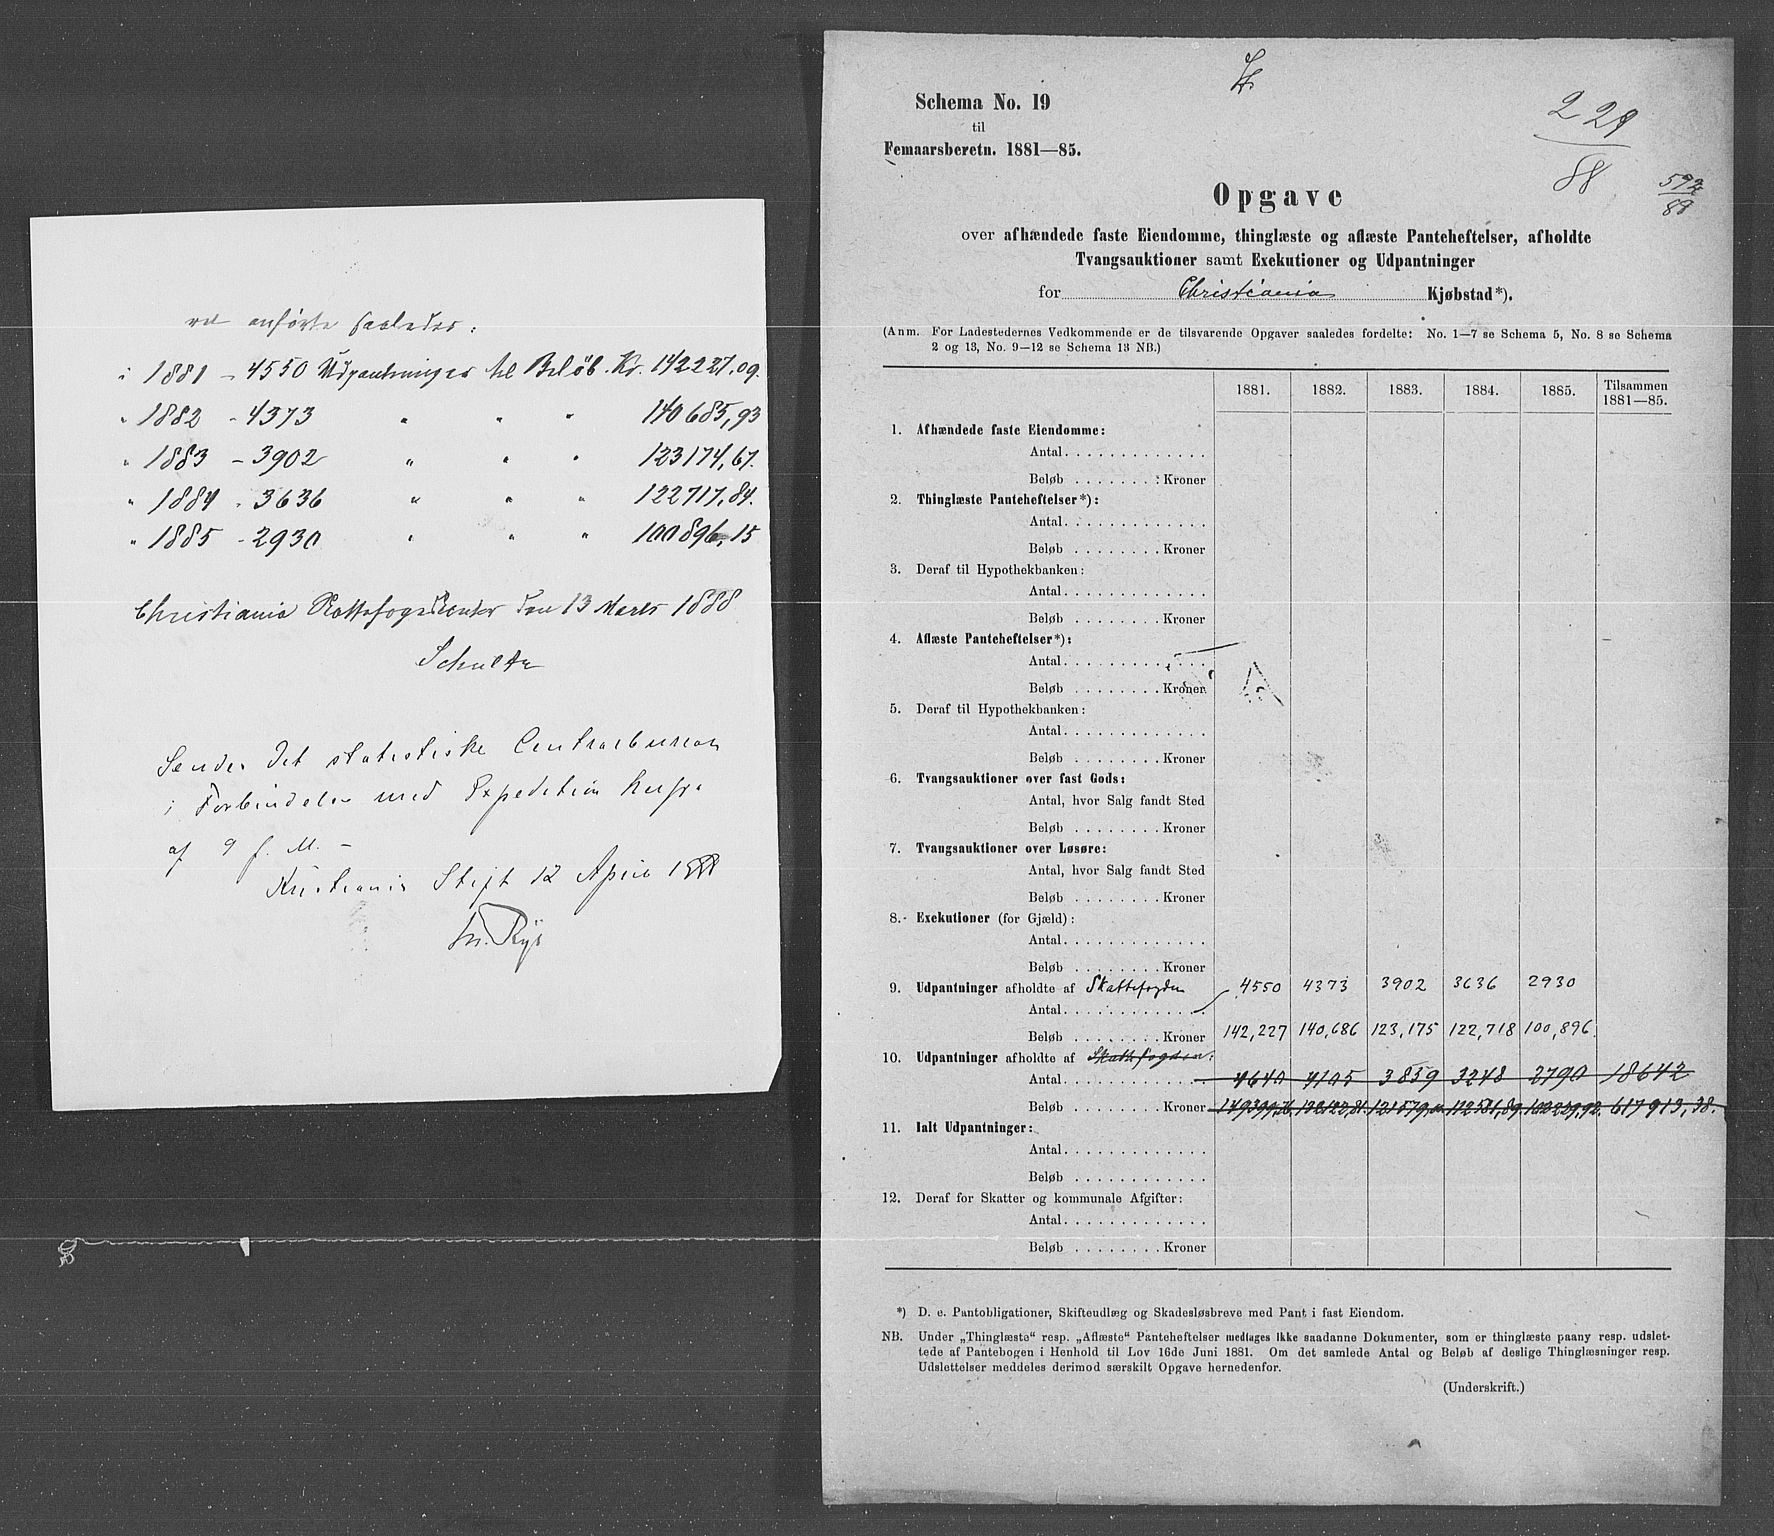 anførte saaledes:
i 1881 - 4550 Udpantninger til Beløb Kr. 142227,09.
" 1882 - 4373 " " " 140685,93
" 1883 - 3902 " " " 123174,67.
" 1884 - 3636 " " " 122717,84.
" 1885 - 2930 " " " 100896,15
Christiania Skattefogedkontor den 13 Marts 1888
Schultz
Sendes det statistiske Centralbureau
i Forbindelse med Expedition herfra
af 9 f. M. -
Kristiania Stift 12 April 1888
Schema No. 19
til
Femaarsberetn. 1881—85.
229
88
592
88
Opgave
over afhændede faste Eiendomme, thinglæste og aflæste Panteheftelser, afholdte
Tvangsauktioner samt Exekutioner og Udpantninger
for Christiania Kjøbstad*).
(Anm. For Ladestedernes Vedkommende er de tilsvarende Opgaver saaledes fordelte: No. 1—7 se Schema 5, No. 8 se Schema
2 og 13, No. 9—12 se Schema 13 NB.)
1881. 1882. 1883. 1884. 1885. Tilsammen
1881—85.
1. Afhændede faste Eiendomme:
Antal . . . . . . . . . . . . .
Beløb . . . . . . . . Kroner
2. Thinglæste Panteheftelser*):
Antal . . . . . . . . . . . . .
Beløb . . . . . . . . Kroner
3. Deraf til Hypothekbanken:
Antal . . . . . . . . . . . . .
Beløb . . . . . . . . Kroner
4. Aflæste Panteheftelser*):
Antal . . . . . . . . . . . . .
Beløb . . . . . . . . Kroner
5. Deraf til Hypothekbanken:
Antal . . . . . . . . . . . . .
Beløb . . . . . . . . Kroner
6. Tvangsauktioner over fast Gods:
Antal, hvor Salg fandt Sted
Beløb . . . . . . . . Kroner
7. Tvangsauktioner over Løsøre:
Antal, hvor Salg fandt Sted
Beløb . . . . . . . . Kroner
8. Exekutioner (for Gjæld):
Antal . . . . . . . . . . . . .
Beløb . . . . . . . . Kroner
9. Udpantninger afholdte af Skattefogden
Antal . . . . . . . . . . . . . 4550 4373 3902 3636 2930
Beløb . . . . . . . . Kroner 142,227 140,686 123,175 122,718 100,896
10. Udpantninger afholdte af Skattefogden:
Antal . . . . . . . . . . . . . 4640 4105 3859 3248 2790 18642
Beløb . . . . . . . . Kroner 617913,38.
11. Ialt Udpantninger:
Antal . . . . . . . . . . . . .
Beløb . . . . . . . . . . . .
12. Deraf for Skatter og kommunale Afgifter:
Antal . . . . . . . . . . . . .
Beløb . . . . . . . . Kroner
*) D. e. Pantobligationer, Skifteudlæg og Skadesløsbreve med Pant i fast Eiendom.
NB. Under „Thinglæste“ resp. „Aflæste“ Panteheftelser medtages ikke saadanne Dokumenter, som er thinglæste paany resp. udslet-
tede af Pantebogen i Henhold til Lov 16de Juni 1881. Om det samlede Antal og Beløb af deslige Thinglæsninger resp.
Udslettelser meddeles derimod særskilt Opgave hernedenfor.
(Underskrift.)